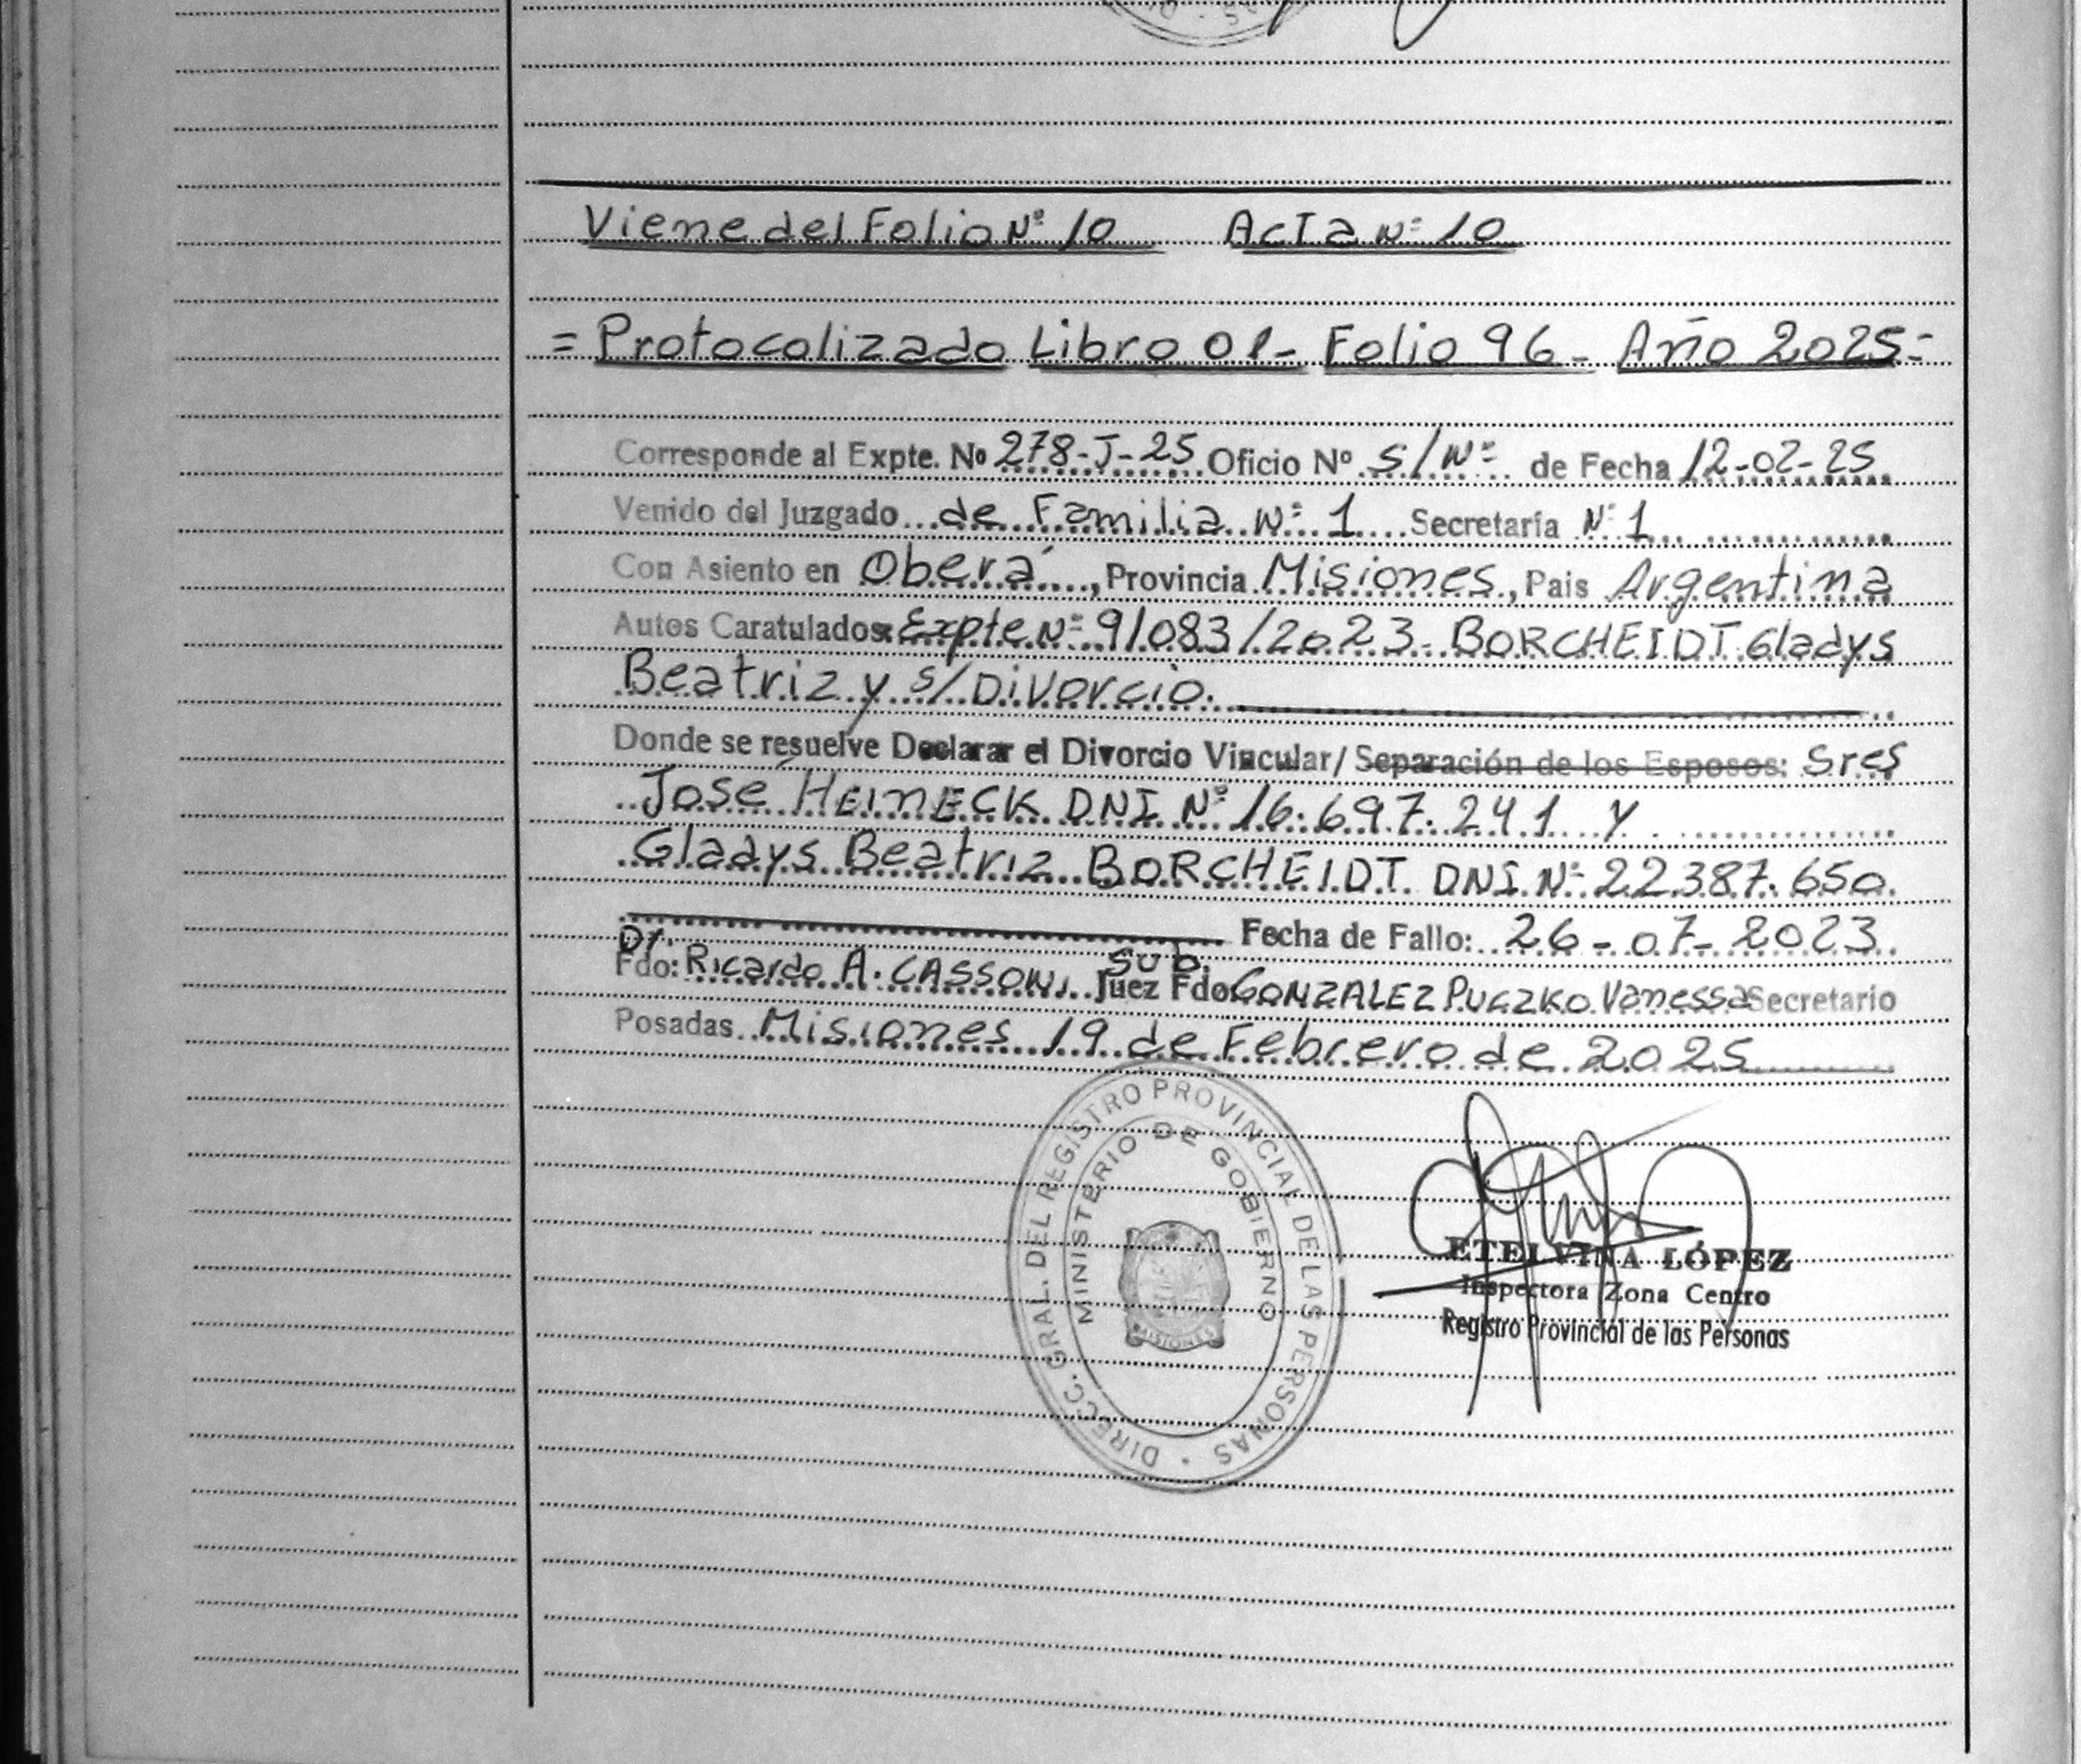 Viene del Folio Nº 10 Acta Nº 10
= Protocolizado Libro 01- Folio 96- Año 2025=
Corresponde al Expte. Nº 278-J-25 Oficio Nº S/Nº de Fecha 12-02-25
Venido del Juzgado de Familia Nº 1 Secretaría Nº 1
Con Asiento en Oberá, Provincia Misiones, Pais Argentina
Autos Caratulados: Expte Nº 91083/2023- BORCHEIDT Gladys
Beatriz y s/ Divorcio.
Donde se resuelve Declarar el Divorcio Vincular/ Separación de los Esposos: Sres
José HEINECK DNI Nº 16.697.241 y
Gladys Beatriz BORCHEIDT DNI Nº 22.387.650.
Fecha de Fallo: 26-07-2023
Fdo: Dr. Ricardo A. CASSONI Juez Sub. Fdo GONZALEZ PUCZKO Vanessa Secretario
Posadas Misiones 19 de Febrero de 2025
DIRECC. GRAL. DEL REGISTRO PROVINCIAL DE LAS PERSONAS
MINISTERIO DE GOBIERNO
MISIONES
ETELVINA LÓPEZ
Inspectora Zona Centro
Registro Provincial de las Personas